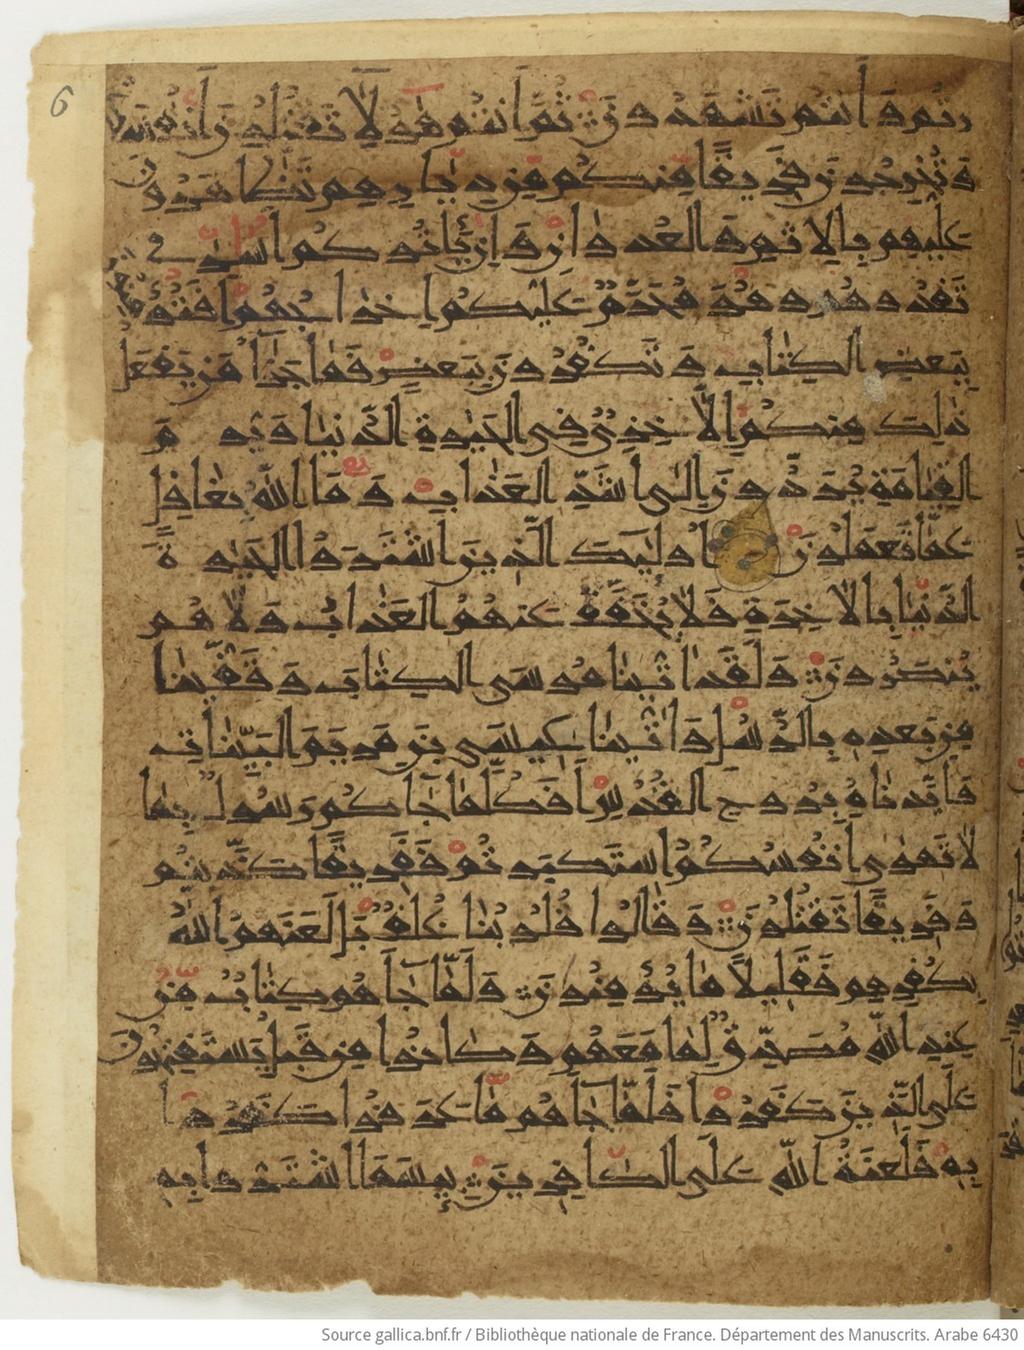 6
رتم وانتم تشهدون ثم انتم هولا تقتلون انفسكم
وتخرجون فريقا منكم من ديارهم تظاهرون
عليهم بالاثم والعدوان وان ياتوكم اسارى
تفدوهم وهو محرم عليكم اخراجهم افتؤمنون
ببعض الكتاب وتكفرون ببعض فما جزا من يفعل
ذلك منكم الا خزى فى الحيوة الدنيا ويوم
القيامة يردون الى اشد العذاب وما الله بغافل
عما تعملون اوليك الذين اشتروا الحيوة
الدنيا بالاخرة فلا يخفف عنهم العذاب ولا هم
ينصرون ولقد اتينا موسى الكتاب وقفينا
من بعده بالرسل واتينا عيسى بن مريم البينات
وايدناه بروح القدس افكلما جاكم رسول بما
لا تهوى انفسكم استكبرتم ففريقا كذبتم
وفريقا تقتلون وقالوا قلوبنا غلف بل لعنهم الله
بكفرهم فقليلا ما يؤمنون ولما جاهم كتاب من
عند الله مصدق لما معهم وكانوا من قبل يستفتحون
على الذين كفروا فلما جاهم ما عرفوا كفروا
به فلعنة الله على الكافرين بيسما اشتروا به
Source gallica.bnf.fr / Bibliothèque nationale de France. Département des Manuscrits. Arabe 6430